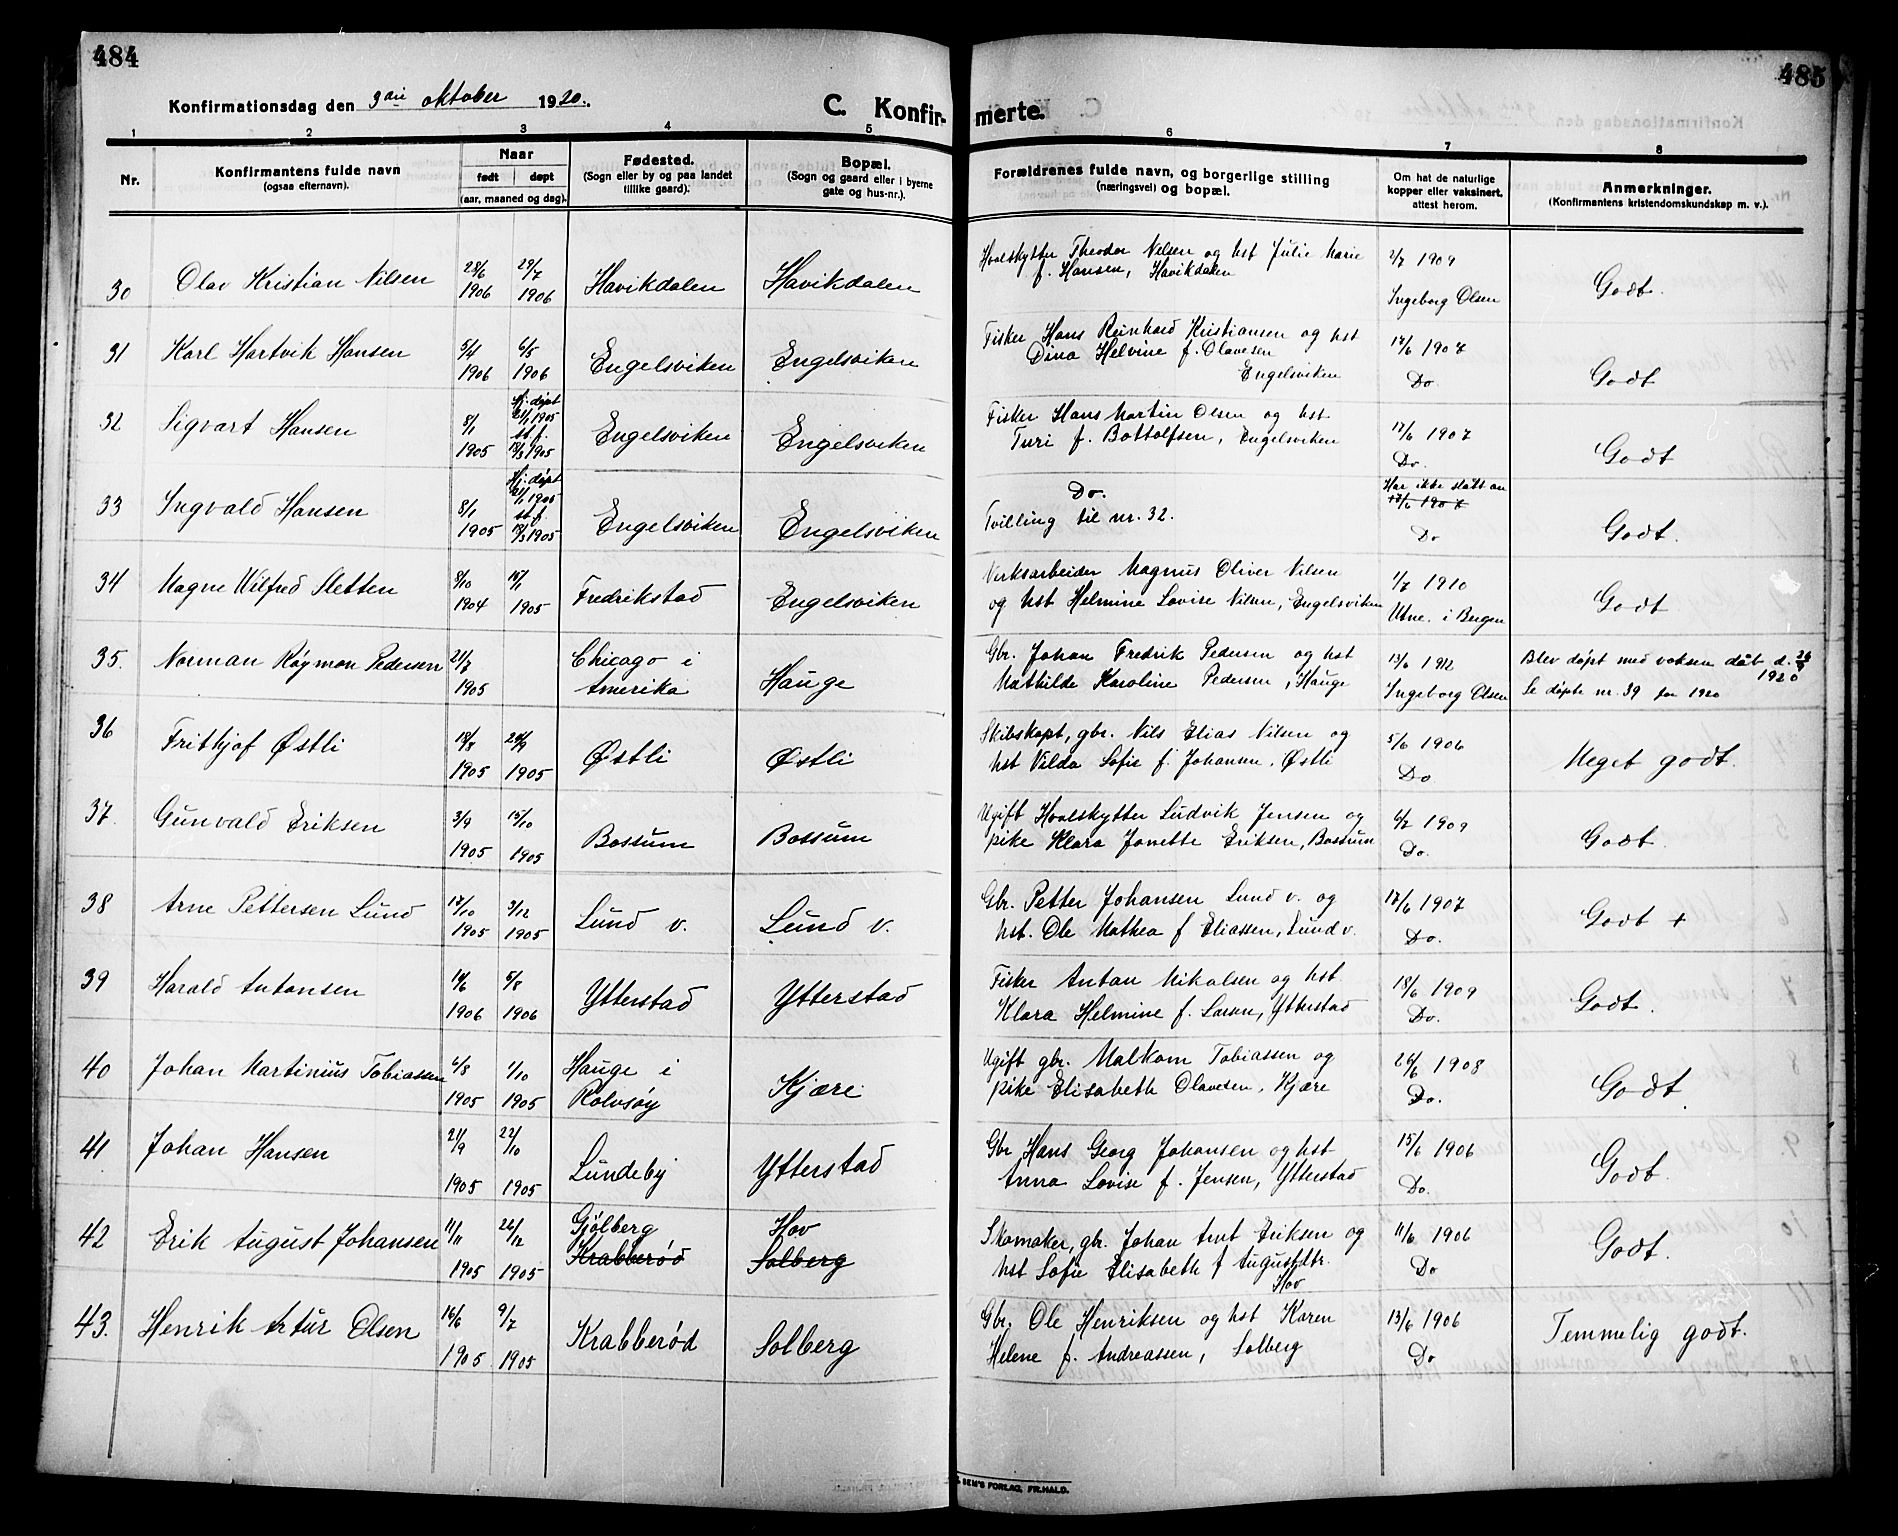 484
485
Konfirmationsdag den 3die oktober 1920.
C. Konfir-
merte.
1 2 3 4 5 6 7 8
Nr.
Konfirmantens fulde navn
(ogsaa efternavn).
Naar
født døpt
(aar, maaned og dag).
Fødested.
(Sogn eller by og paa landet
tillike gaard).
Bopæl.
(Sogn og gaard eller i byerne
gate og hus-nr.).
Forældrenes fulde navn, og borgerlige stilling
(næringsvei) og bopæl.
Om hat de naturlige
kopper eller vaksinert,
attest herom.
Anmerkninger.
(Konfirmantens kristendomskundskap m. v.).
30 Olav Kristian Nilsen 28/6 1906 29/7 1906 Havikdalen Havikdalen
Hvalskytter Theodor Nilsen og hst Julie Marie
f. Hansen, Havikdalen
2/7 1909
Ingeborg Olsen
Godt.
31 Karl Hartvik Hansen 5/4 1906 6/5 1906 Engelsviken Engelsviken
Fisker Hans Reinhard Kristiansen og hst
Dina Helvine f. Olavesen
Engelsviken
17/6 1907
Do
Godt
32 Sigvart Hansen 8/1 1905 Hj. døpt 21/1 1905 st. f. 12/3 1905 Engelsviken Engelsviken
Fisker Hans Martin Olsen og hst
Turi f. Bottolfsen, Engelsviken
17/6 1907
Do.
Godt
33 Ingvald Hansen 8/1 1905 Hj. døpt 21/1 1905 st. f. 12/3 1905 Engelsviken Engelsviken
Do.
Tvilling til nr. 32.
Har ikke slått an
17/6 1907
Do
Godt.
34 Magne Wilfred Sletten 8/10 1904 15/1 1905 Fredrikstad Engelsviken
Verksarbeider Magnus Oliver Nilsen
og hst Helmine Lovise Nilsen, Engelsviken
1/7 1910
Utne. i Bergen
Godt
35. Norman Røymon Pedersen 21/7 1905 Chicago i Amerika Hauge
Gbr. Johan Fredrik Pedersen og hst
Mathilde Karoline Pedersen, Hauge
13/6 1912
Ingeborg Olsen
Blev døpt med voksen dåb d.
1920
Se døpte nr. 39 for 1920
36 Frithjof Østli 18/8 1905 24/9 1905 Østli Østli
Skibskapt, gbr. Nils Elias Nilsen og
hst Vilda Sofie f. Johansen, Østli
5/6 1906
Do
Meget godt.
37. Gunvald Eriksen 3/9 1905 15/10 1905 Bossum Bossum
Ugift Hvalskytter Ludvik Jensen og
pike Klara Jonette Eriksen, Bossum
6/7 1909
Do.
Godt.
38 Arne Pettersen Lund 17/10 1905 3/12 1905 Lund v. Lund v.
Gbr. Petter Johansen Lund v. og
hst. Ole Mathea f Eliassen, Lund v.
17/6 1907
Do.
Godt +
39 Harald Antonsen 14/6 1906 5/8 1906 Ytterstad Ytterstad
Fisker Anton Nikolsen og hst
Klara Helmine f. Larsen, Ytterstad
18/6 1909
Do.
Godt.
40 Johan Martinius Tobiassen 6/8 1905 1/10 1905 Hauge i Rolvsøy Kjære
Ugift gbr. Malkom Tobiassen og
pike Elisabeth Olavesen, Kjære
26/6 1908
Do.
Godt.
41 Johan Hansen 21/9 1905 22/10 1905 Lundeby Ytterstad
Gbr Hans Georg Johansen og hst
Anna Lovise f. Jensen, Ytterstad
15/6 1906
Do.
Godt.
42 Erik August Johansen 11/11 1905 26/12 1905 Gjølberg Krabberød Hov Solberg
Skomaker, gbr. Johan Arnt Eriksen og
hst Sofie Elisabeth f Augustdtr.
Hov
11/6 1906
Do
Godt.
43. Henrik Artur Olsen 16/6 1905 9/7 1905 Krabberød Solberg
Gbr. Ole Henriksen og hst Karen
Helene f. Andreassen, Solberg
13/6 1906
Do
Temmelig godt.
SEM'S FORLAG, FR.HALD.